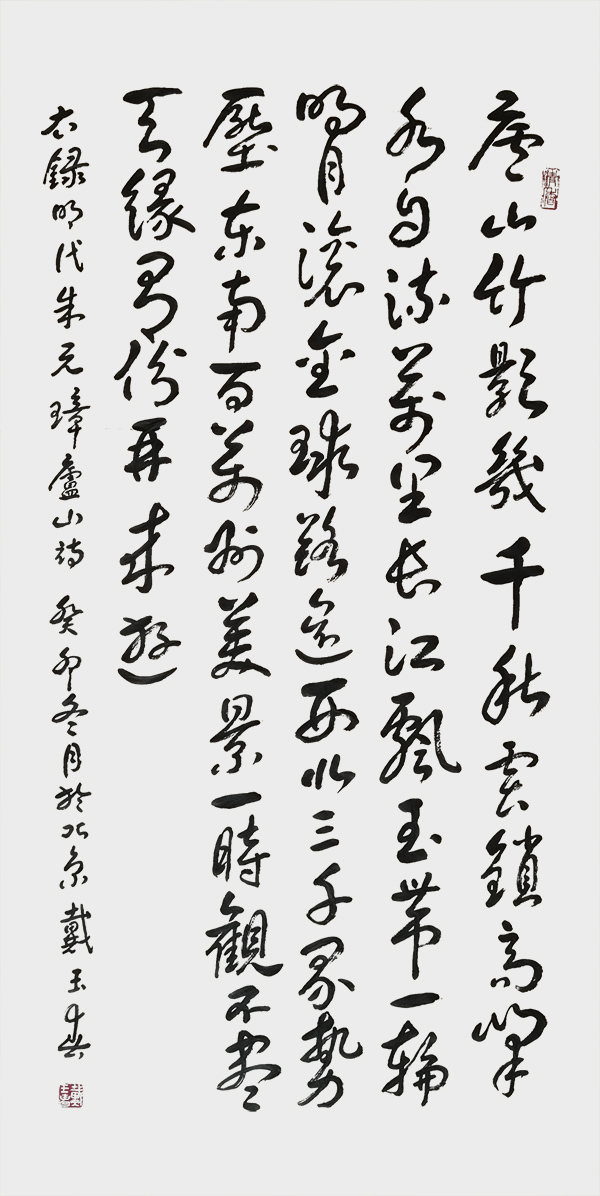 廬山竹影幾千秋雲鎖高峯
水自流萬里長江飄玉帶一輪
明月滾金球路遙西北三千界勢
壓東南百萬州美景一時觀不盡
天緣有份再來遊
右錄明代朱元璋廬山詩 癸卯冬月於北京 戴玉